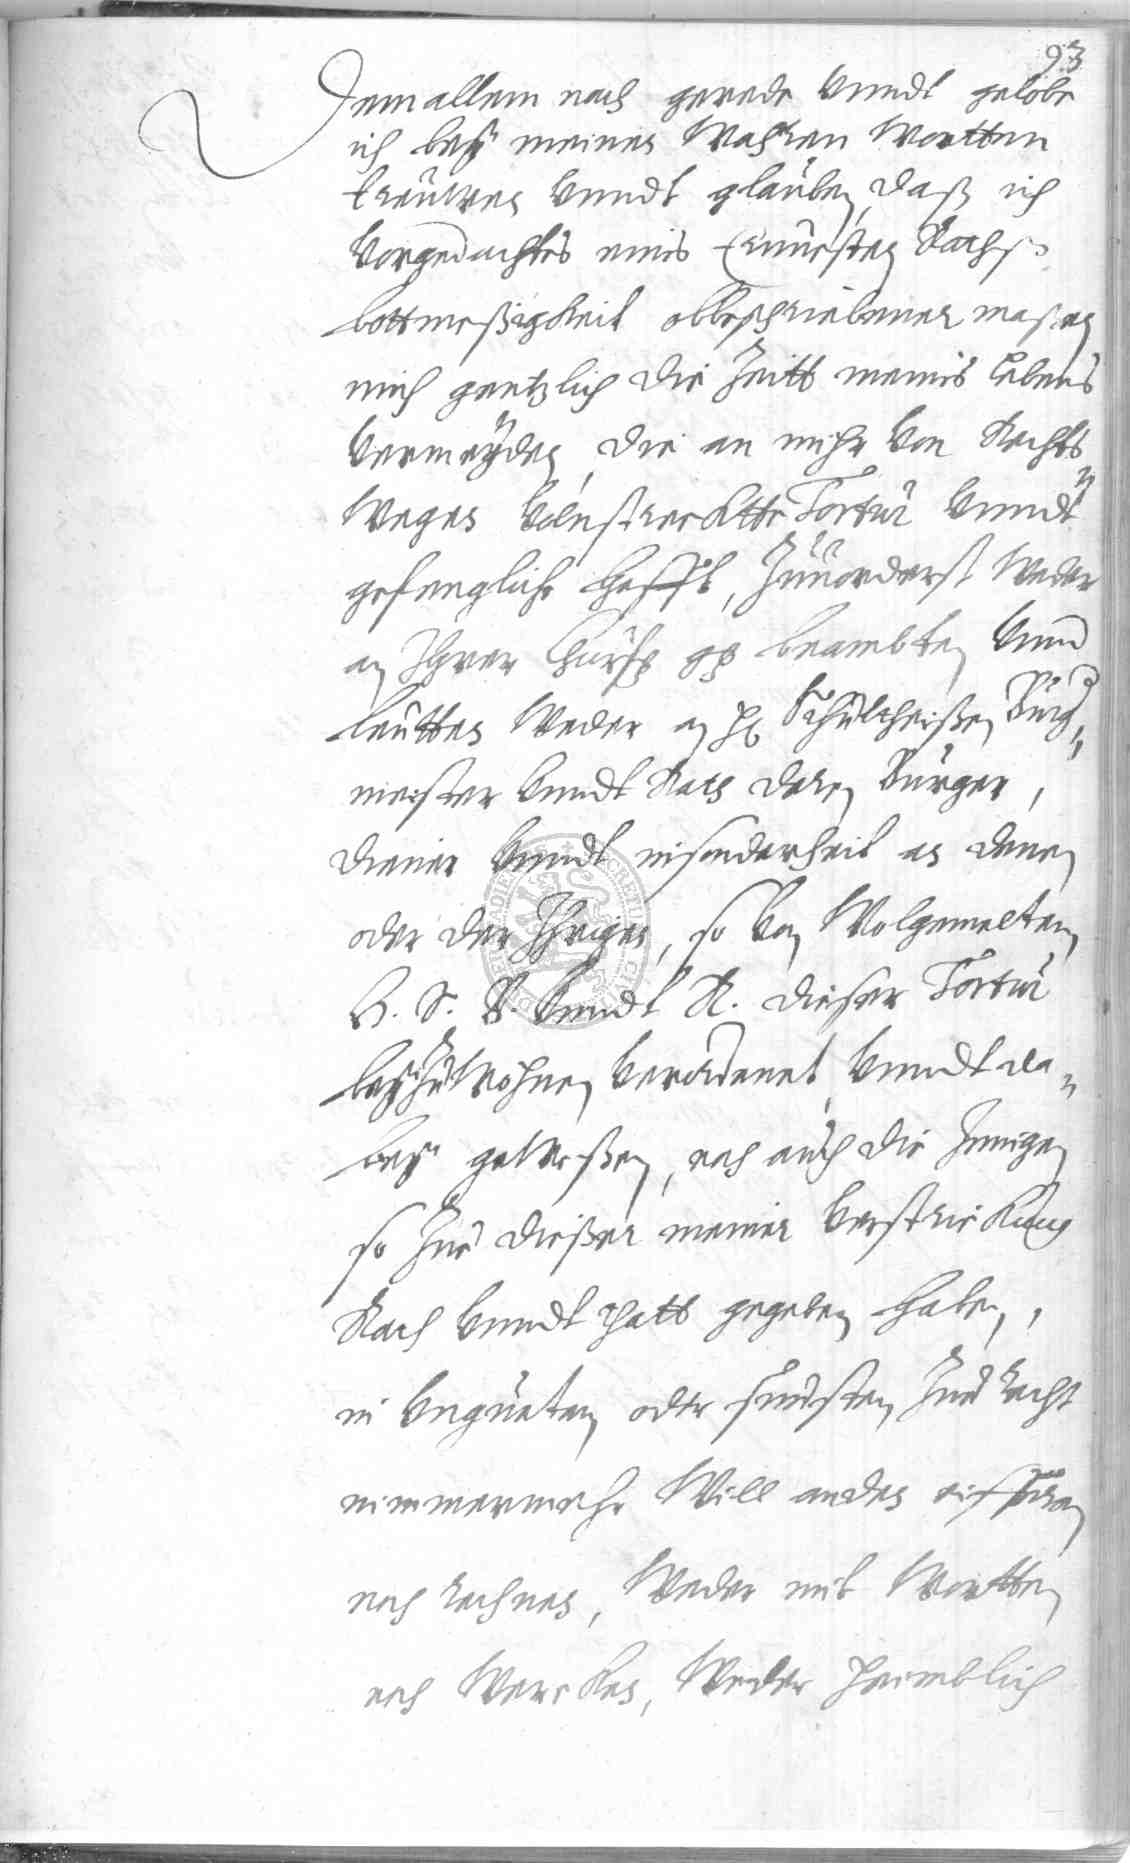 93
Dem allem nach gerede vnndt gelobe
ich bey meinen Wahren Wortten
treuwen vnndt glauben, daß ich
Vorgedachtes eines Ernuesten Rathß
bottmeßigkeit obbeschriebener maßen
mich gentzlich die Zeitt meines Lebens
vermeyden, die an mihr von Rechts
Wegen Volnstrecktte Tortur vnndt
gefengliche Hafft, Zuuorderst Weder
an Ihrer Churf: g: beambten vnnd
leutten Weder an H: Schultheißen Burg,,
meister vnndt Rath deren Burger,
diener vnndt insonderheit an denen
oder der Ihrigen, so von Wolgemelten
H. S. B. vnndt R. dieser Tortur
beyzuwohnen verordenet, vnndt da,,
bey geweßen, noch auch die Jenigen
so Zue dießer meiner verstrickung
Rath vnndt thatt gegeben haben,
in vngueten oder sunsten Zue Recht
nimmermehr Will anden eiffern
noch rechnen, Weder mit Wortten
noch Wercken, Weder heimblich